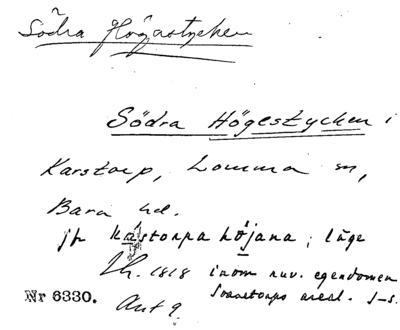 Södra Högastycken
Södra Högestycken i
Karstorp, Lomma sn,
Bara hd.
jfr kastorpa höjana; läge
Lh. 1818 inom nuv. egendomen
Nr 6330. Ant 9.